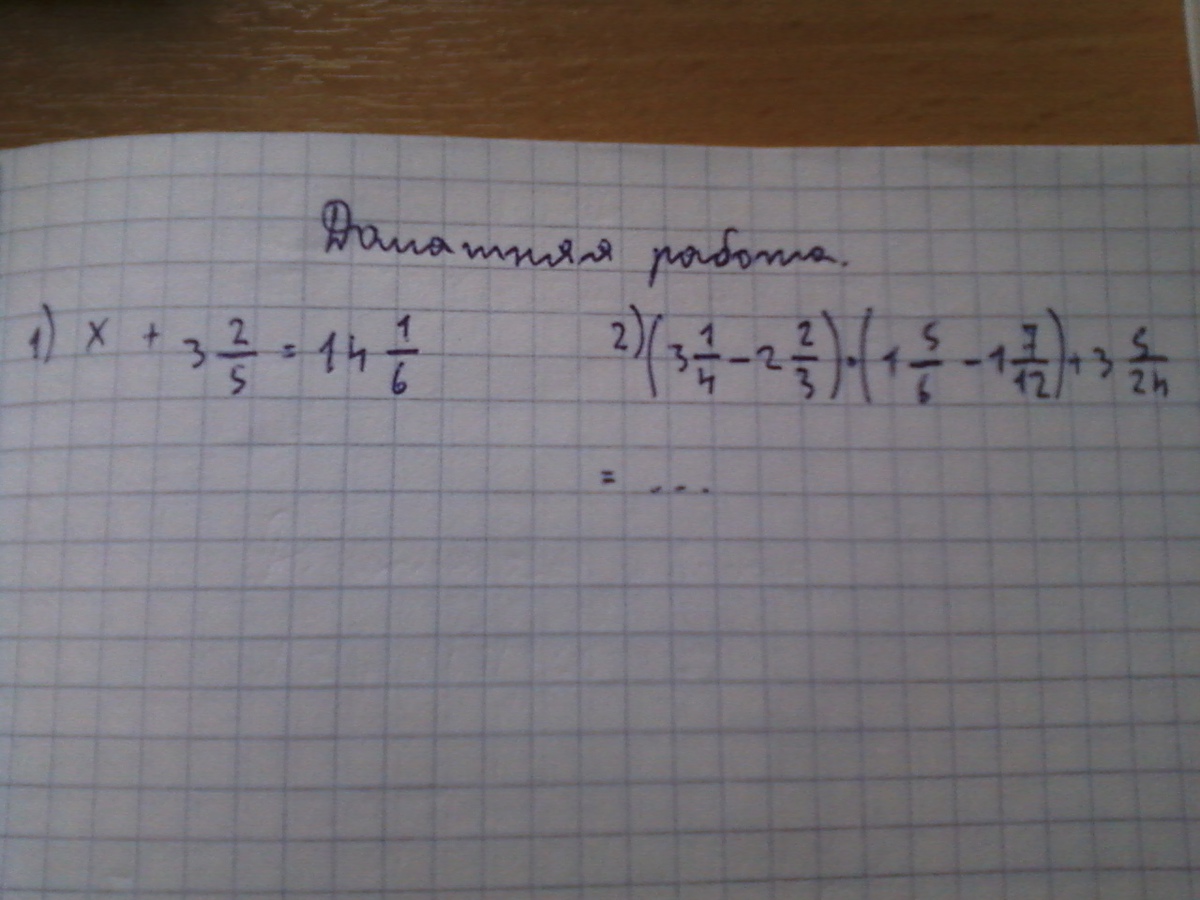 Домашняя работа.
1) x + 3 2/5 = 14 1/6
2) (3 1/4 - 2 2/3) · (1 5/6 - 1 7/12) + 3 5/24
= ...